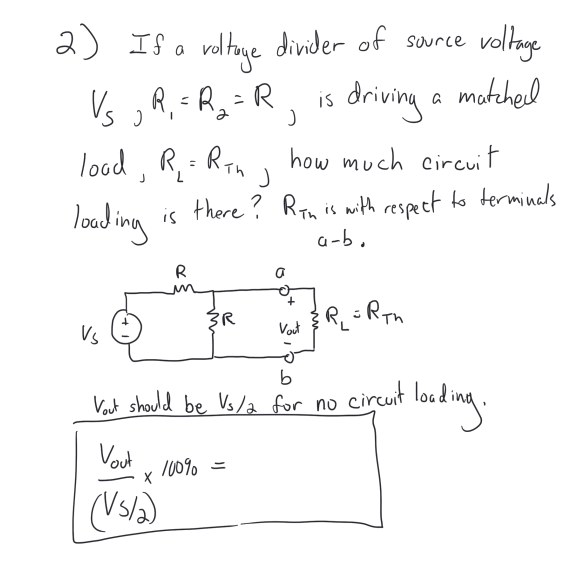 2) If a voltage divider of source voltage
Vs, R₁ = R₂ = R, is driving a matched
load, R_L = R_Th, how much circuit
loading is there? R_Th is with respect to terminals
a-b.
R
a
+
Vs
+
-
R
Vout
-
R_L = R_Th
b
Vout should be Vs/2 for no circuit loading.
Vout
x 100% =
(Vs/2)